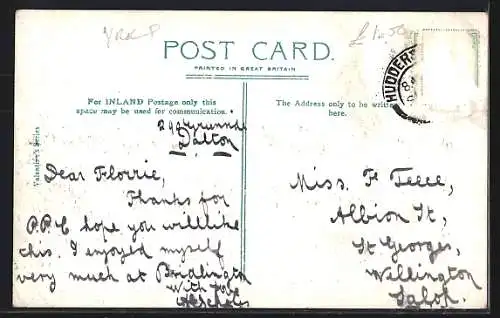 YRK P
£1.50
POST CARD.
PRINTED IN GREAT BRITAIN
HUDDER
For INLAND Postage only this
space may be used for communication.
The Address only to be
here.
Valentine's Series
29
Dalton
Dear Florrie,
Thanks for
P.P.C hope you will like
this. I enjoyed myself
very much at Bridlington
With love
Miss. F
Albion St,
St Georges,
Wellington
Salop.